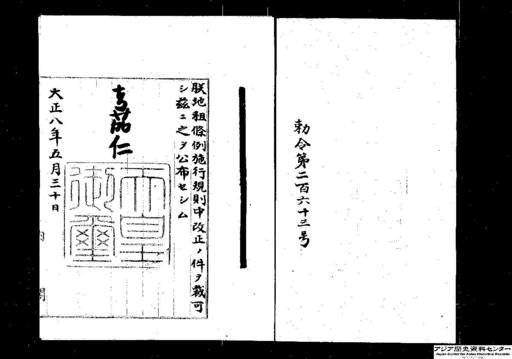 勅令第二百六十三号
朕地租條例施行規則中改正ノ件ヲ裁可
シ茲ニ之ヲ公布セシム
嘉仁
天皇
御璽
大正八年五月三十日
内閣
アジア歴史資料センター
Japan Center for Asian Historical Records